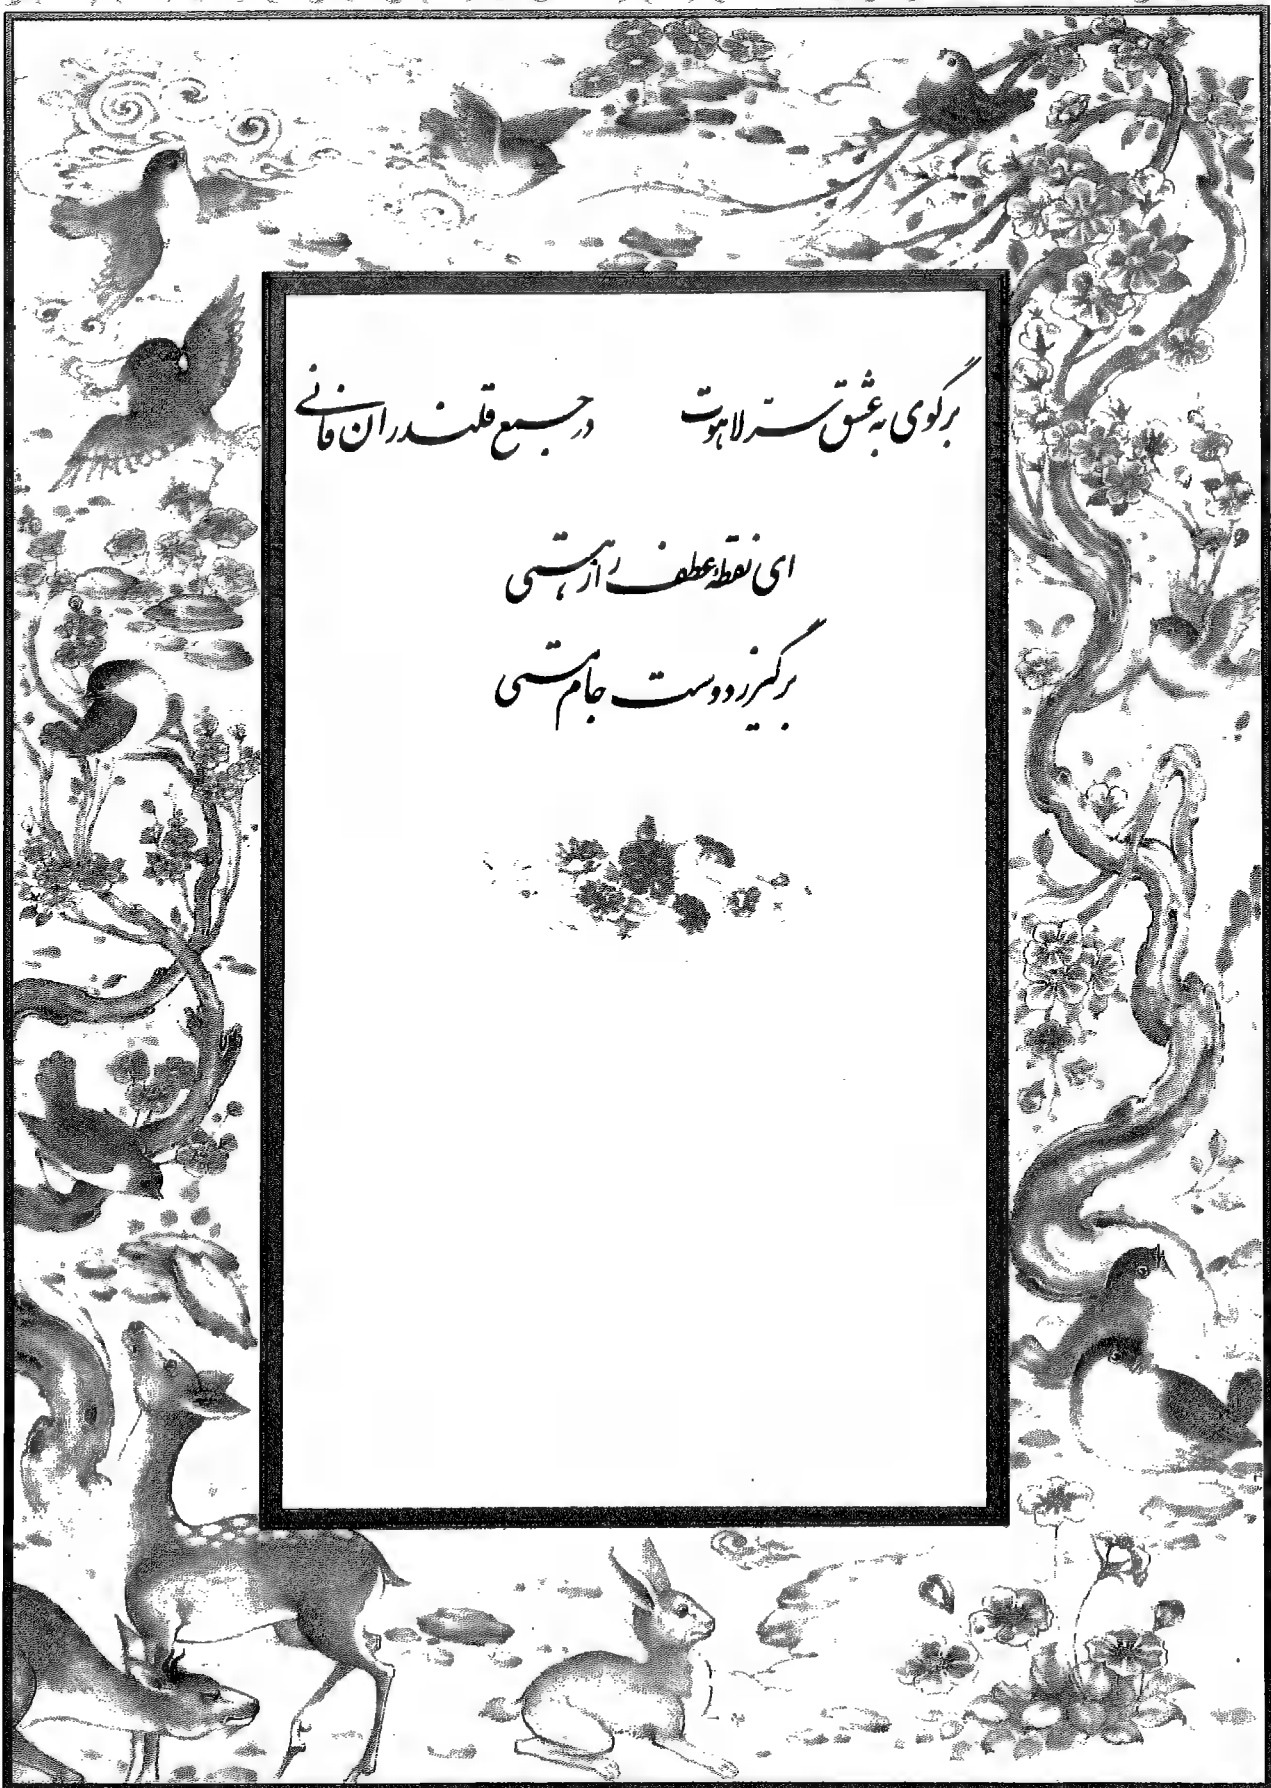 برگوی به عشق سر لاهوت در جمع قلندران فانی
ای نقطهٔ عطف راز هستی
برگیر ز دوست جام مستی